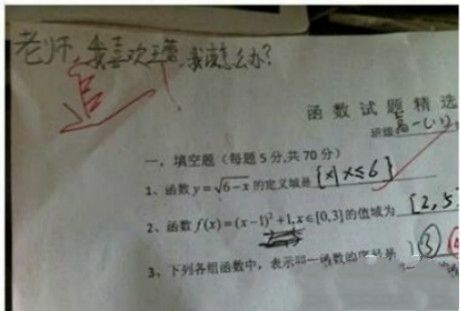 老师,我喜欢王蕾,我该怎么办?
追
函数试题精选
班级 高一(1)
一、填空题(每题5分,共70分)
1、函数 y=√6-x 的定义域是 {x|x≤6}
2、函数 f(x)=(x-1)²+1,x∈[0,3]的值域为 [2,5
3、下列各组函数中,表示同一函数的序号是 ③